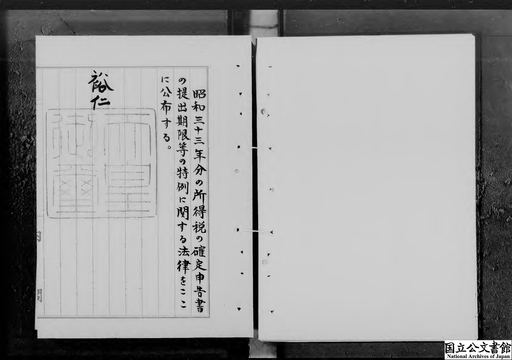 昭和三十三年分の所得税の確定申告書
の提出期限等の特例に関する法律をここ
に公布する。
裕仁
天皇
御璽
国立公文書館
National Archives of Japan